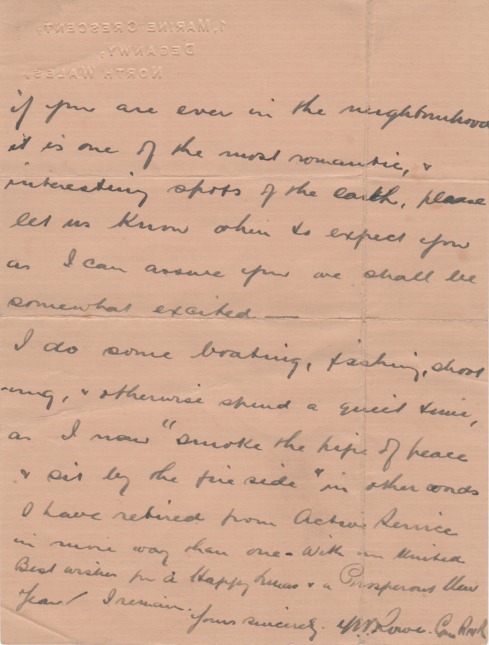 1, MARINE CRESCENT,
DEGANWY,
NORTH WALES.
if you are ever in the neighbourhood
it is one of the most romantic, &
interesting spots of the earth, please
let us know when to expect you
as I can assure you we shall be
somewhat excited —
I do some boating, fishing, shoot
-ing, & otherwise spend a quiet time,
as I now "smoke the pipe of peace
& sit by the fire side" in other words
I have retired from Active Service
in more way than one - With our United
Best wishes for a Happy Xmas & a Prosperous New
Year / I remain. Yours sincerely. Rowe.